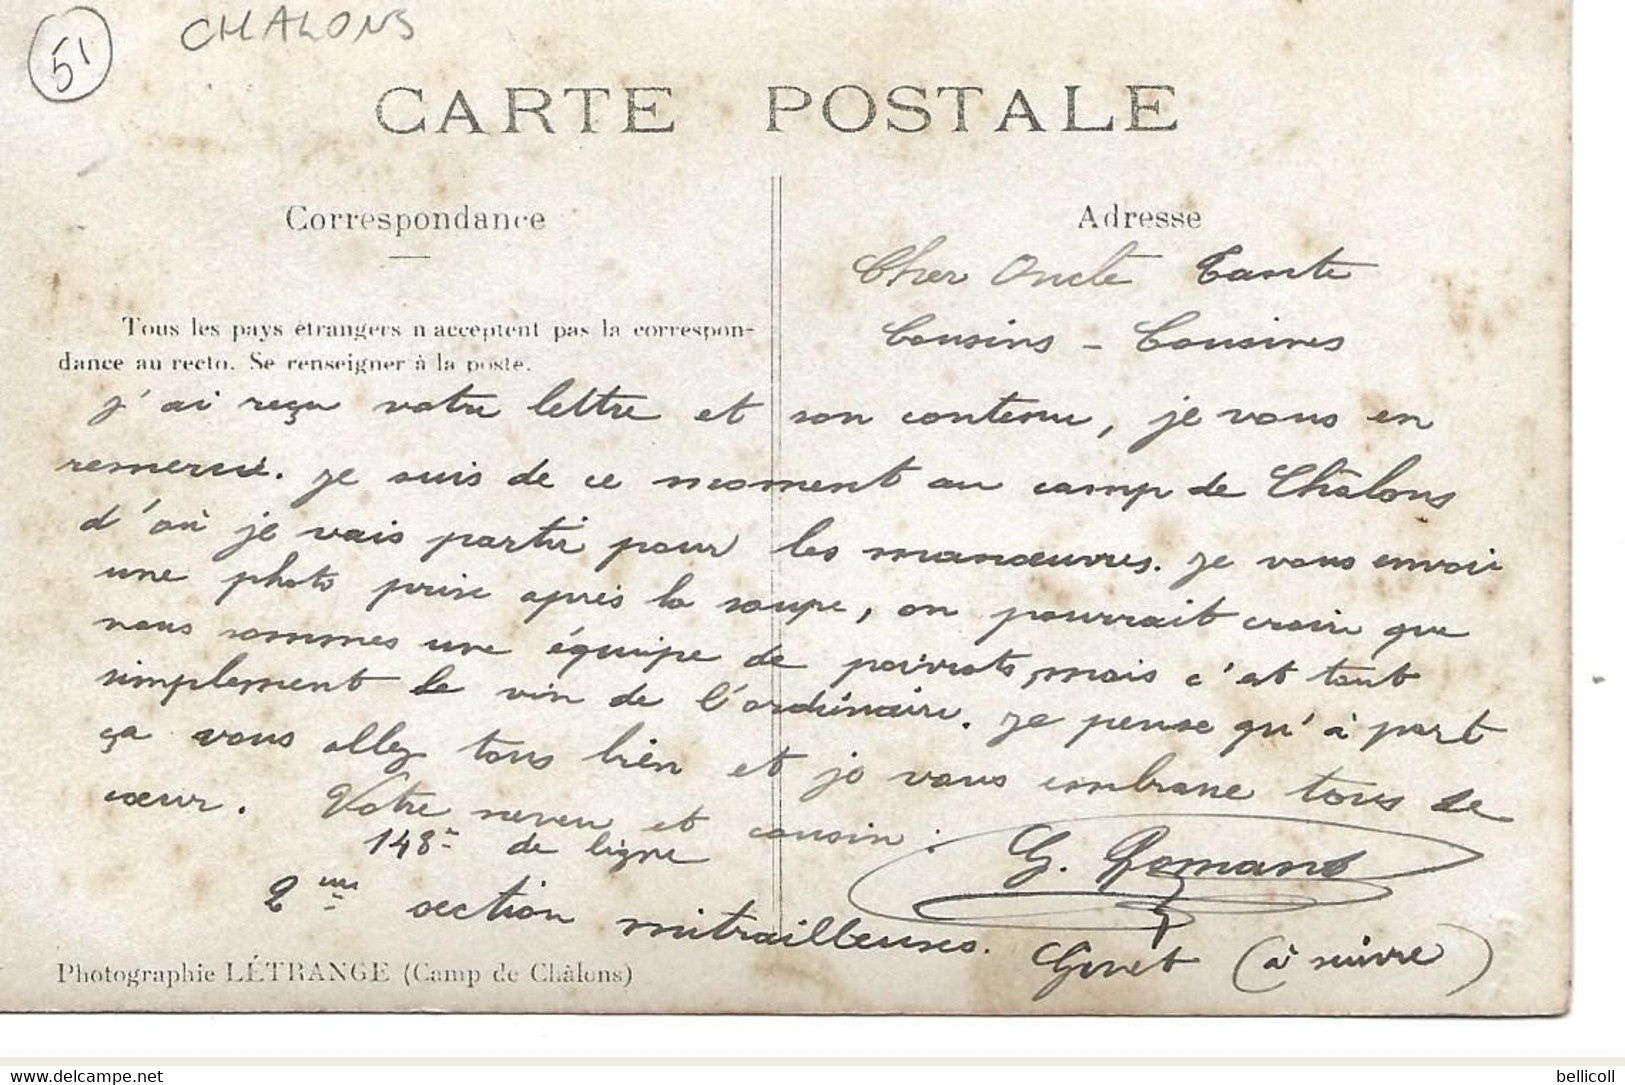 51
CHALONS
CARTE POSTALE
Correspondance
Adresse
Tous les pays étrangers n'acceptent pas la correspon-
dance au recto. Se renseigner à la poste.
Cher Oncle Tante
Cousins - Cousines
j'ai reçu votre lettre et son contenu, je vous en
remercie. je suis de ce moment au camp de Châlons
d'où je vais partir pour les manœuvres. je vous envoie
une photo prise après la soupe, on pourrait croire que
nous sommes une équipe de poivrots, mais c'est tout
simplement le vin de l'ordinaire. je pense qu'à part
ça vous allez tous bien et je vous embrasse tous de
cœur. Votre neveu et cousin :
148e de ligne
G. Romans
2ème section mitrailleuses.
Givet (à suivre)
Photographie LÉTRANGE (Camp de Châlons)
delcampe.net
bellicoll